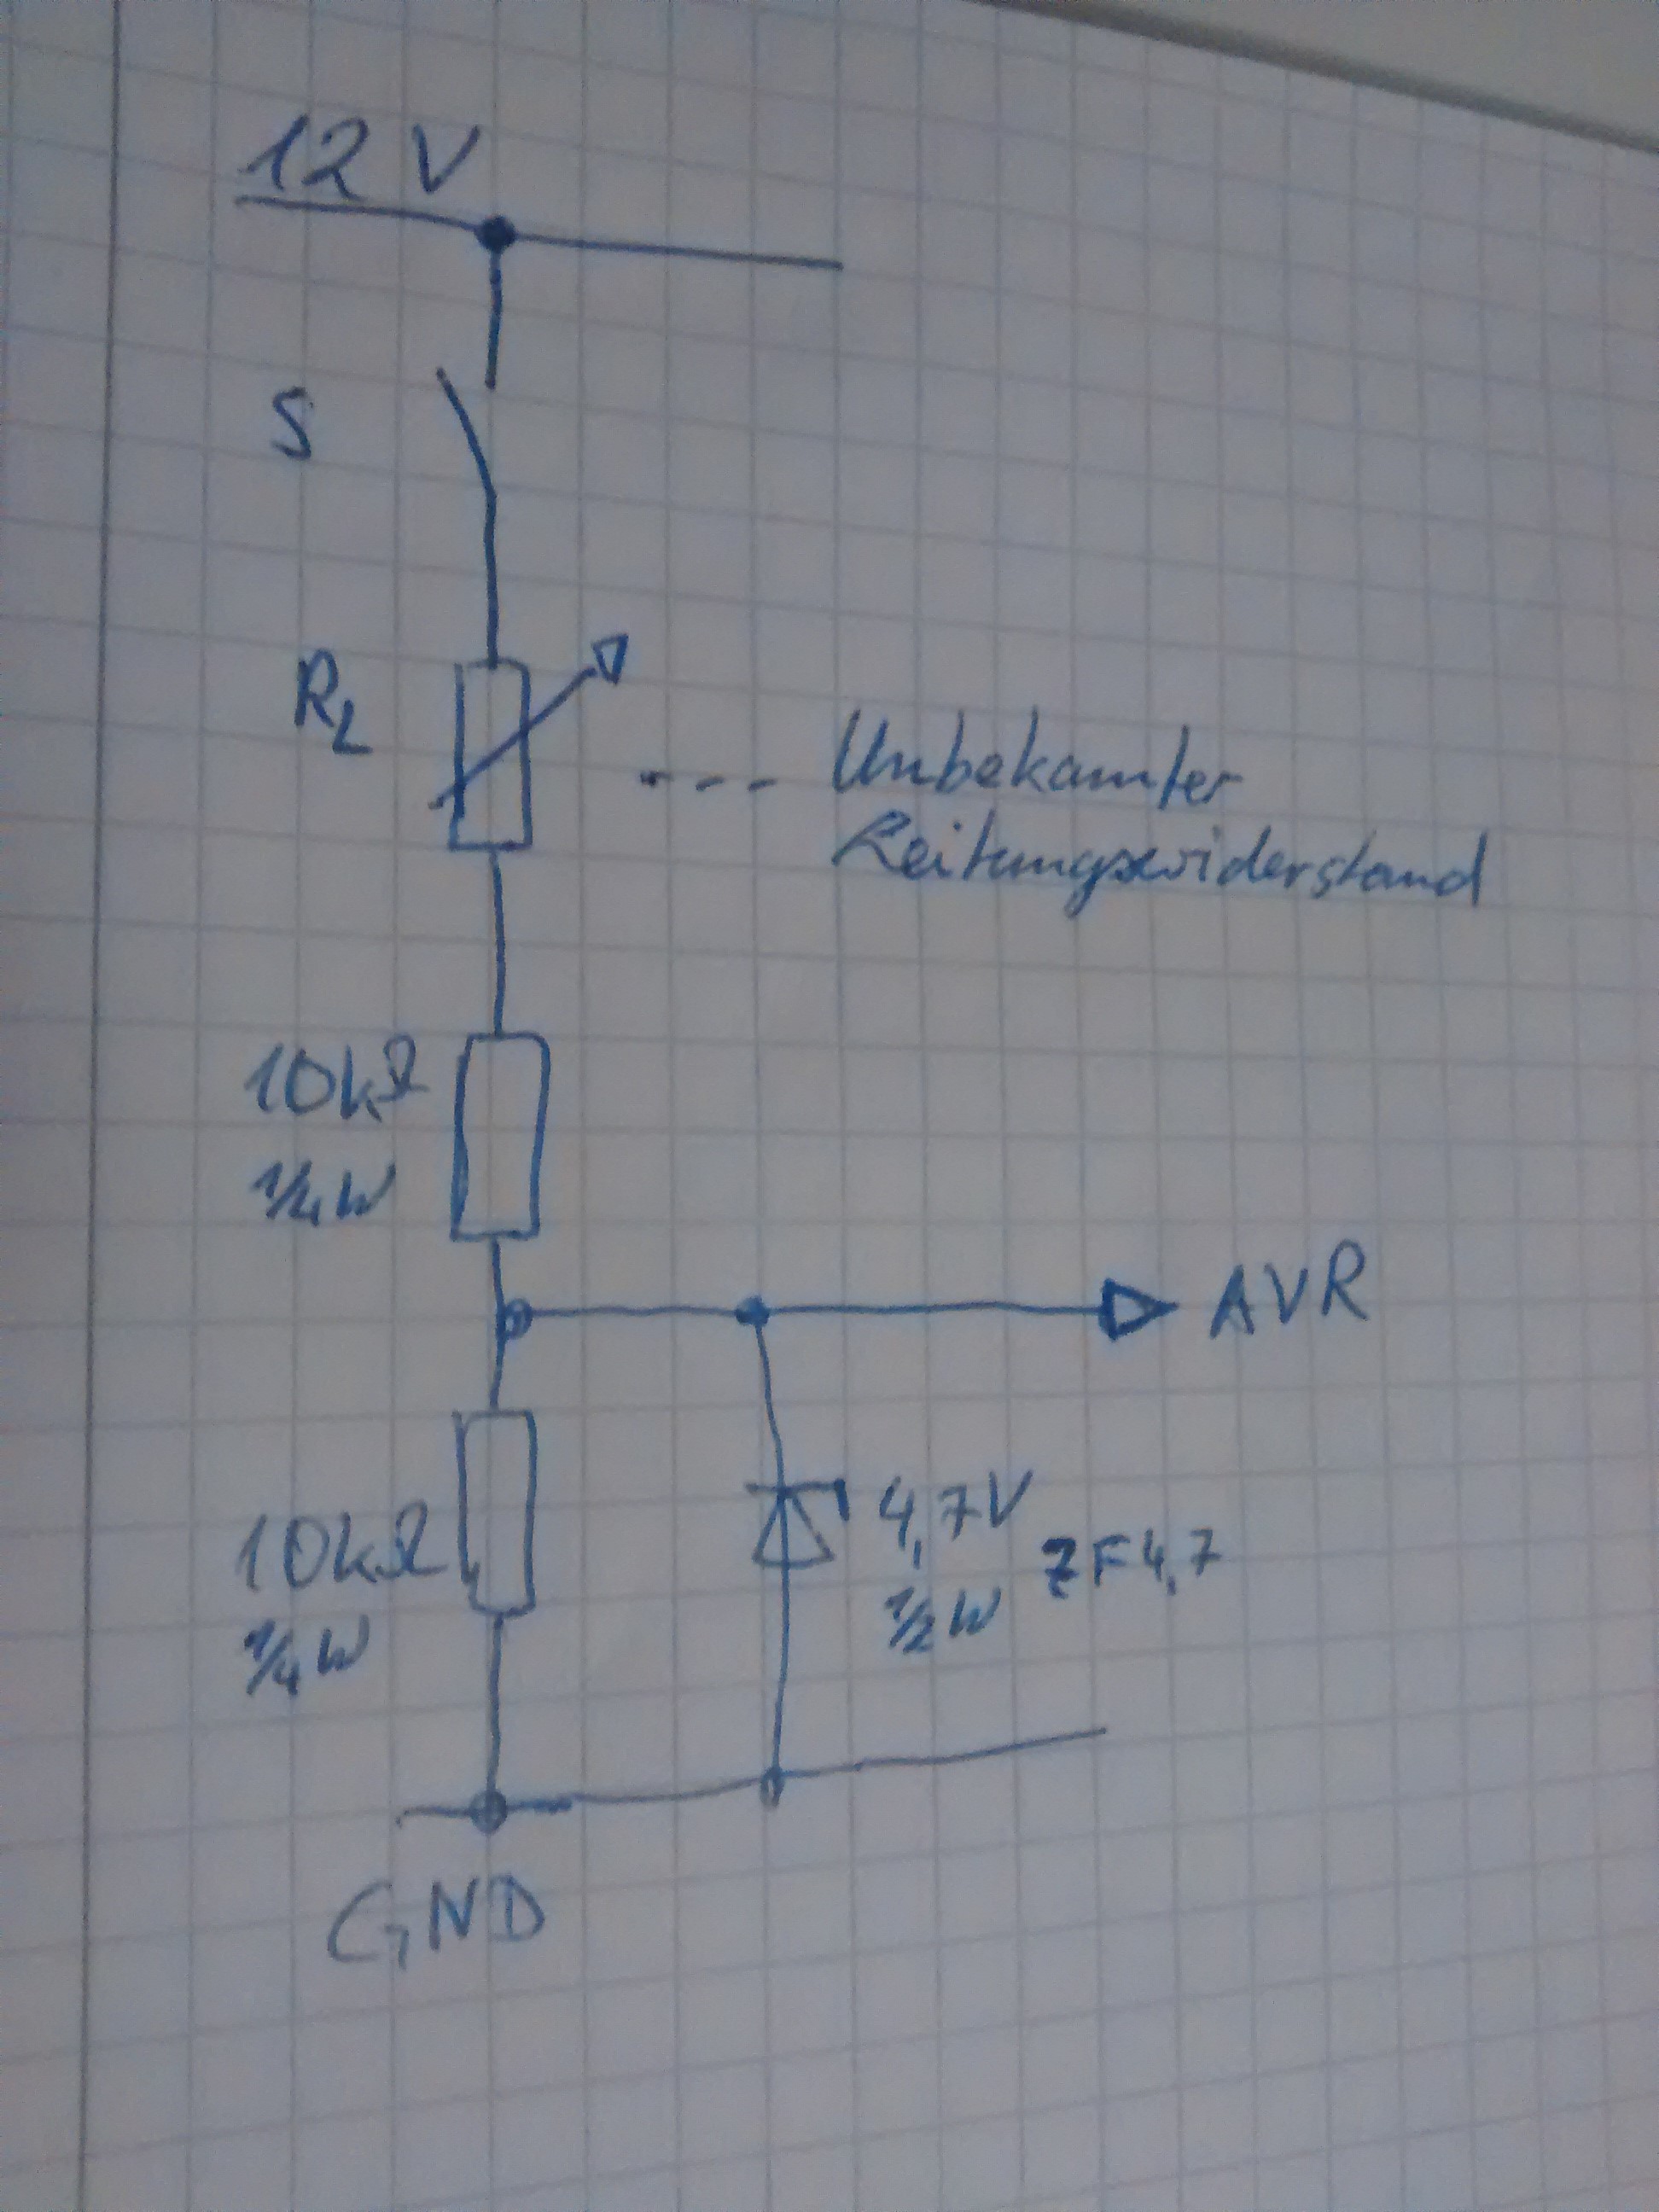 12 V
S
R_L
Unbekannter
Leitungswiderstand
10kΩ
1/4 W
AVR
10kΩ
1/4 W
4,7V
1/2 W
ZF4,7
GND